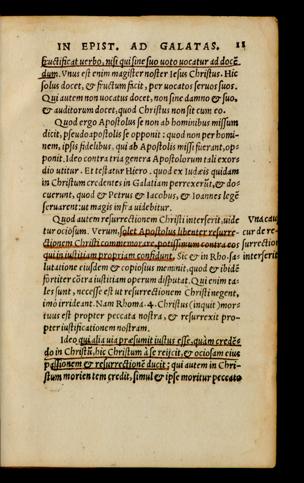 IN EPIST. AD GALATAS. 11
fructificat verbo, nisi qui sine suo voto vocatur ad docē
dum. Vnus est enim magister noster Iesus Christus. Hic
solus docet, & fructum ficit, per vocatos seruos suos.
Qui autem non vocatus docet, non sine damno & suo,
& auditorum docet, quod Christus non sit cum eo.
Quod ergo Apostolus se non ab hominibus missum
dicit, pseudoapostolis se opponit: quod non per homi-
nem, ipsis fidelibus, qui ab Apostolis missi fuerant, op-
ponit. Ideo contra tria genera Apostolorum tali exor
dio vtitur. Et testatur Hiero. quod ex Iudæis quidam
in Christum credentes in Galatiam perrexerūt, & do-
cuerunt, quod & Petrus & Iacobus, & Ioannes legē
seruarent: ut magis infra videbitur.
Quod autem resurrectionem Christi interserit, vide
tur ociosum. Verum, solet Apostolus libenter resurre-
ctionem Christi commemorare, potissimum contra eos
qui in iustitiam propriam confidunt. Sic & in Rho. sa-
lutatione eiusdem & copiosius meminit, quod & ibidē
fortiter cōtra iustitiam operum disputat. Qui enim ta-
les sunt, necesse est ut resurrectionem Christi negent,
imò irrideant. Nam Rhoma. 4. Christus (inquit) mor-
tuus est propter peccata nostra, & resurrexit pro-
pter iustificationem nostram.
Ideo qui alia via præsumit iustus esse, quàm credē-
do in Christū, hic Christum à se reijcit, & ociosam eius
passionem & resurrectionē ducit: qui autem in Chri-
stum morientem credit, simul & ipse moritur peccato
Vna cau
cur de re-
surrectio
interserit